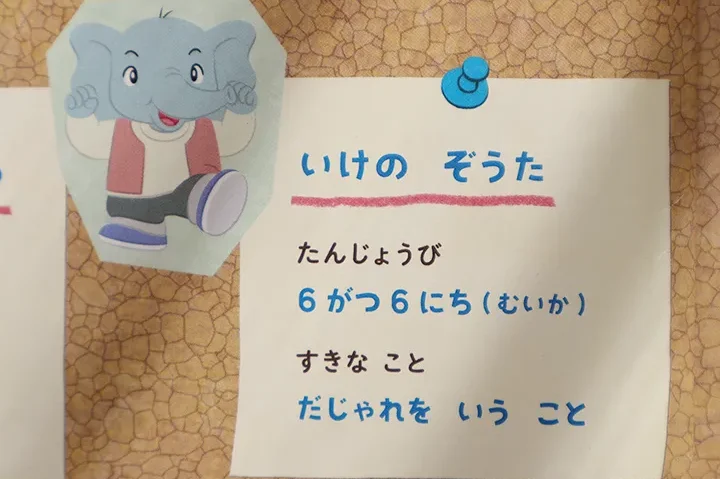 いけの ぞうた
たんじょうび
6がつ6にち(むいか)
すきな こと
だじゃれを いう こと